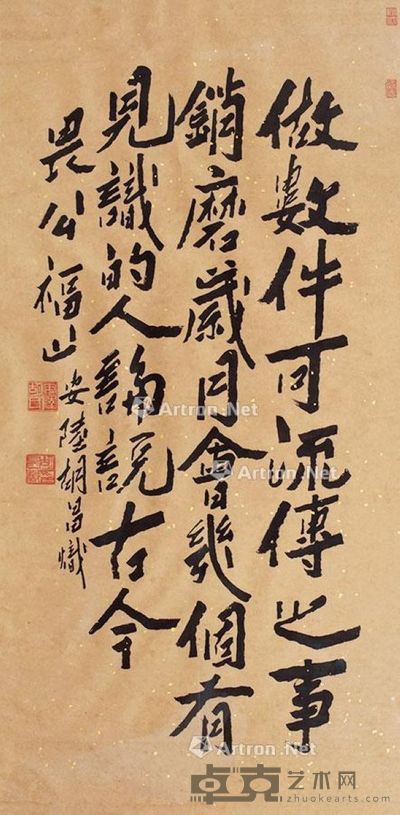 做數件可流傳之事
銷磨歲月會幾個有
見識的人說古今
畏公福山
安陸胡昌熾
Artron.Net
Artron.Net
Artron.Net
Artron.Net
卓克艺术网
zhuokearts.com